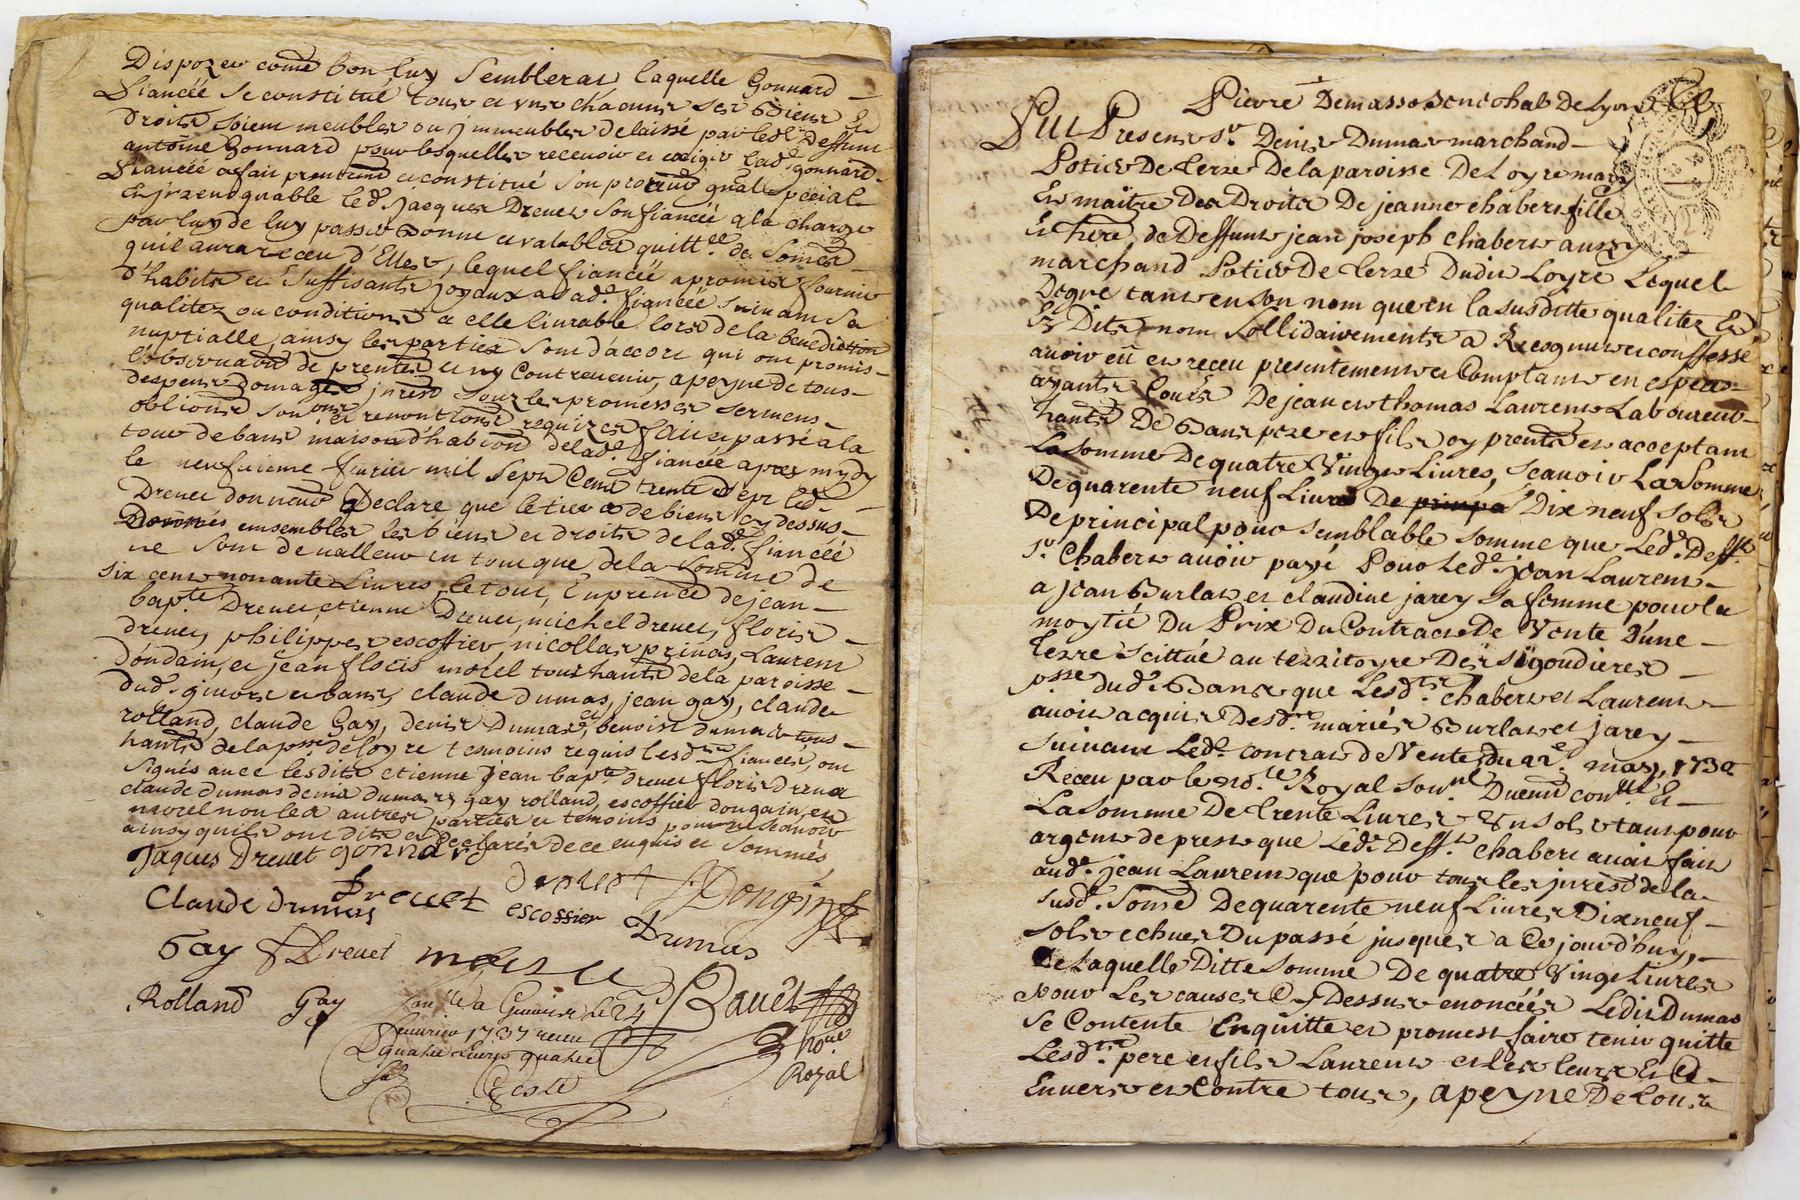 Dispozer come bon luy Semblerat, laquelle Gonnard
fiancéé Se constitue tous et uns chacuns ses Biens Et
Droits soient meubles ou jmmeubles delaissé par led. deffunt
antoine Gonnard pour lesquelles recevoir et exiger lad.e gonnard
fiancéé a fait et constitué Son gnal Spécial
Et jrrevoquable led. jacques Drevet Son fiancéé a la charge
par luy de luy passer Bonne et valables quitt.ce de Somes
quil aurat receu d'Elles, lequel fiancéé a promis fournir
d'habits et Suffisants joyaux a lad.e fiancéé Suivant Sa
qualitez ou conditions a elle livrable lors de la benediction
nuptialle, ainsy les parties Sont d'accort qui ont promis
l'observaon de et ny Contrevenir, apeyne de tous
despens Domages jntrest Sous les promesses Sermens
oblions Son ons et renontions requizes fait et passé a la
tour de bans maison d'habion de lad.e fiancéé apres mydy
le neufvieme fevrier mil Sept Cent trente Sept led.
Drevet Declare que le tier de biens cy dessus
Donnés ensembles les biens et droits de lad.e fiancéé
ne Sont de valleur en tout que de la Somme de
Six cent nonante Livres, le tout, En prence de jean
bap.te Drevet etienne Drevet, michel drevet, floris
drevet, philippes escoffier, nicollas privas, Laurent
dondain, et jean floris morel tous hants de la paroisse
dud. givors et bans, claude dumas, jean gay, claude
rolland, claude Gay, denis Dumas, et benoist dumas tous
hants de la psse de loyre tesmoins requis lesd. fiancéé, ont
Signés avec lesdits etienne jean bap.te drevet floris drevet
claude dumas denis dumas gay rolland, escoffier dongain, et
morel non les autres parties et temoins pour ne Scavoir
ainsy quils ont dits et declarés de ce enquis et Sommés
Jaques Drevet gonnard
Drevet drevet Dongoin
Claude Dumas escossier Dumas
Gay f Drevet morel
Rolland Gay Bauét
Con.lé a Givors le 24
fevrier 1737 receu
quatre Livres quatre
sol
noë
Royal
Pierre Demasso Senechal de Lyon
Fut Present S.r Denis Dumas marchand
Potier De Terre De la paroisse De Loyre mary
Et maitre Des Droits De jeanne chabert fille
Et here. de Deffunt jean joseph chabert aussy
marchand Potier De Terre Dudit Loyre Lequel
Degré tant en Son nom que en la susditte qualitez Et
Es Dits nom Sollidairements a Recognu et confessé
avoir eü et receu presentement et Comptant en especes
ayants Cours De jean et thomas Laurent Laboureur
hants De Bans pere et fils cy prents et acceptant
La Somme De quatre Vingt Livres, Scavoir La Somme
De quarente neuf Livres De Dix neuf Sols
De principal pour Semblable Somme que Led. Deff.t
S.r Chabert avoir payé Pour Led. jean Laurent
a jean Burlat et claudine jarey Sa femme pour la
moytié Du Prix Du Contract De Vente d'une
Terre Scittué au territoyre Des Sigoudieres
psse dud. Bans que Lesd.ts chabert et Laurent
avoit acquis Desd.ts mariés Burlat et jarey
Suivant Led. contrat de Vente du 22.e may 1730
Receu par le no.re Royal Sou.né Duemt con.llé Et
La Somme De Trente Livres Un Sols tant pour
argent de prest que Led. Deff.t chabert avoit fait
aud. jean Laurent que pour tous les jnrest de la
susd. Some De quarente neuf Livres Dix neuf
Sols echues Du passé jusques a Ce jourd'huy,
De Laquelle Ditte Somme De quatre Vingt Livres
Pour Les causes Cy Dessus enoncéés Ledit Dumas
Se Contente En quitte et promest faire tenir quitte
Lesd.ts pere et fils Laurent et Les leurs Et
Envers et Contre tous, apeyne De tous